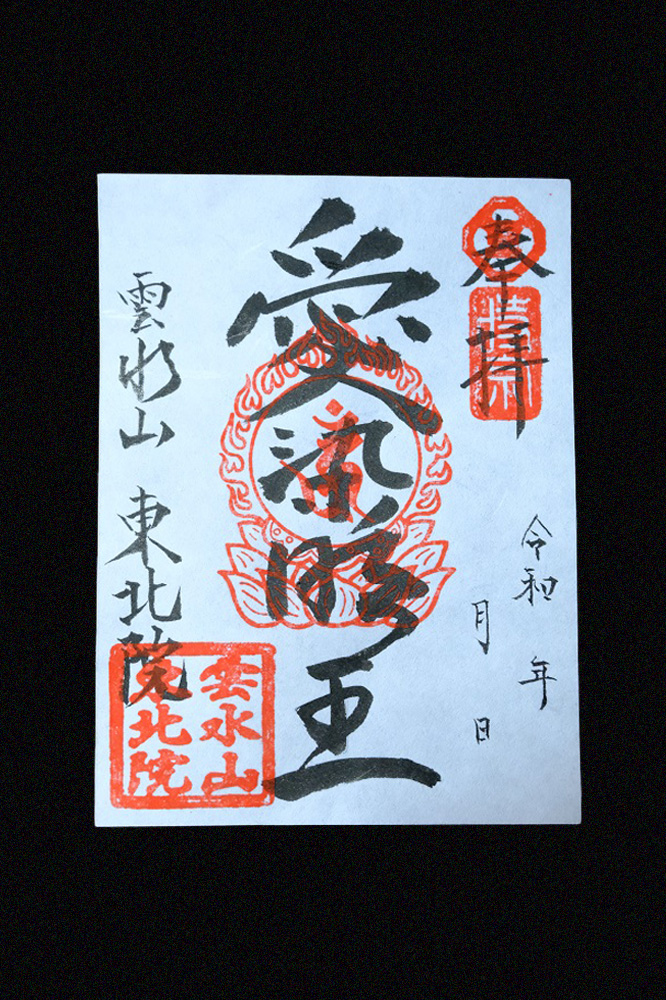 奉拝
令和 年
月 日
愛染明王
雲水山 東北院
雲水山
東北院